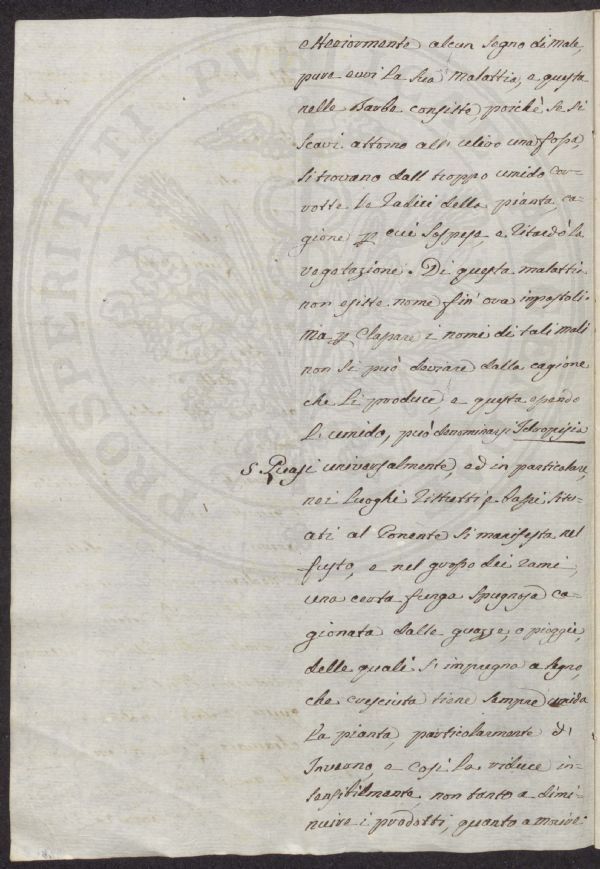 esteriormente alcun segno di male,
pure evvi la sua malattia, e questa
nelle Barbe consiste poichè se si
scavi attorno all' ulivo una fossa,
si trovano dall troppo umido cor-
rotte le radici della pianta, ca-
gione p cui sospesa, e ritardò la
vegetazione. Di questa malattia
non esiste nome fin' ora impostoli.
Ma p classare i nomi di tali mali
non si può deviare dalla cagione
che li produce, e questa essendo
l'umido, può denominarsi Idropisia
5. Quasi universalmente, ed in particolare,
nei luoghi ristretti e bassi situ-
ati al Ponente si manifesta nel
fusto, e nel grosso dei rami,
una certa funga spugnosa ca-
gionata dalle guazze, e pioggie,
delle quali s'impregna a segno,
che cresciuta tiene sempre umida
la pianta, particolarmente d'
Inverno, e così la riduce in-
sensibilmente, non tanto a dimi-
nuire i prodotti, quanto a morire
PROSPERITATI PUBLICAE